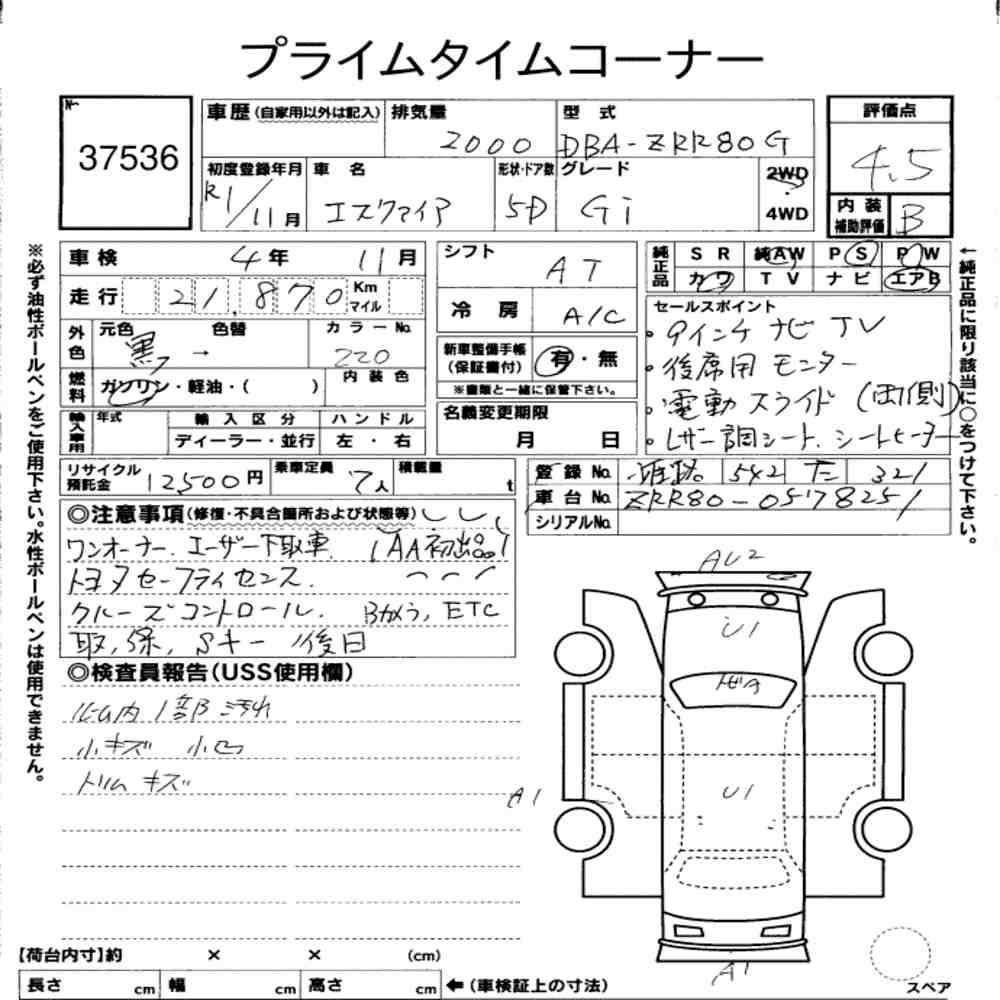 プライムタイムコーナー
№ 37536
車歴 (自家用以外は記入) 排気量 2000 型式 DBA-ZRR80G
評価点 4.5
初度登録年月 R1/11月 車名 エスクァイア 形状・ドア数 5D グレード Gi 2WD・4WD
内装補助評価 B
車検 4年 11月
シフト AT
純正品 SR 純AW PS PW
カワ TV ナビ エアB
走行 21,870 Km マイル
冷房 A/C
外色 元色 黒 色替 → カラーNo. 220
新車整備手帳(保証書付) 有・無
※書類と一緒に保管下さい。
燃料 ガソリン・軽油・( ) 内装色
名義変更期限 月 日
輸入車用 年式 輸入区分 ハンドル
ディーラー・並行 左・右
セールスポイント
・9インチナビTV
・後席用モニター
・電動スライド(両側)
・レザー調シート、シートヒーター
リサイクル預託金 12500円 乗車定員 7人 積載量 t
登録No. 姫路 542 た 321
車台No. ZRR80-0578251
シリアルNo.
◎注意事項(修復・不具合箇所および状態等)
ワンオーナー、ユーザー下取車 (AA初出品)
トヨタセーフティセンス.
クルーズコントロール. Bカメラ, ETC
取,保, Sキー 後日
◎検査員報告(USS使用欄)
ルーム内 1部汚れ
小キズ 小凹
トリム キズ
AU2
U1
トビA
U1
A1
A1
スペア
【荷台内寸】約 × × (cm)
長さ cm 幅 cm 高さ cm ←(車検証上の寸法)
※必ず油性ボールペンをご使用下さい。水性ボールペンは使用できません。
←純正品に限り該当に○をつけて下さい。